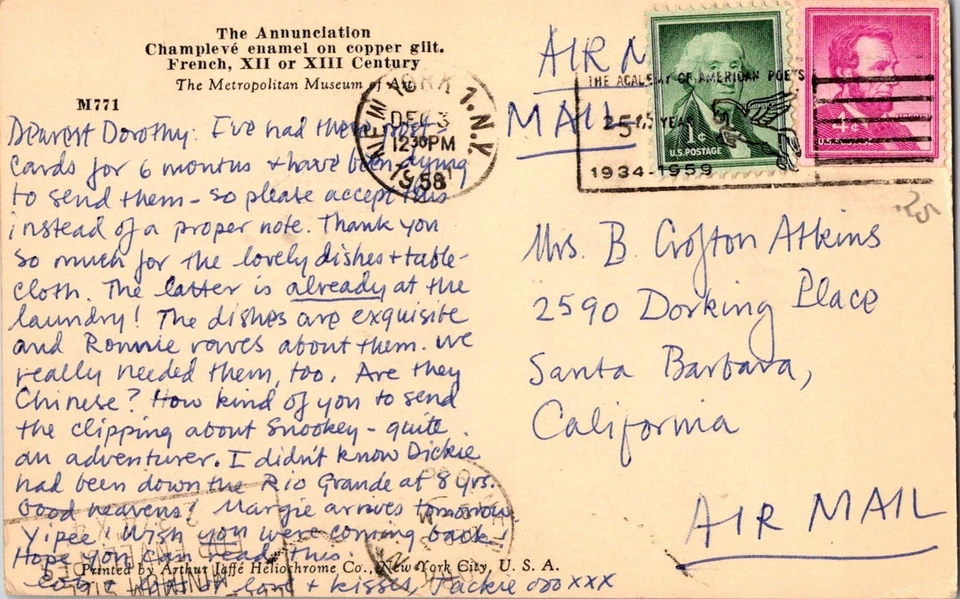 The Annunciation
Champlevé enamel on copper gilt.
French, XII or XIII Century
The Metropolitan Museum of Art
M771
Dearest Dorothy: I've had these post-
cards for 6 months + have been dying
to send them - so please accept this
instead of a proper note. Thank you
so much for the lovely dishes + table-
cloth. The latter is already at the
laundry! The dishes are exquisite
and Ronnie raves about them. We
really needed them, too. Are they
Chinese? How kind of you to send
the clipping about Snookey - quite
an adventurer. I didn't know Dickie
had been down the Rio Grande at 8 yrs.
Good heavens! Margie arrives tomorrow
Yipee! Wish you were coming back
Hope you can read this.
Printed by Arthur Jaffé Heliochrome Co., New York City, U. S. A.
love + kisses, Jackie oooxxx
YORK 1. N.Y.
DEC 3
12 30 PM
1958
AIR M
MAIL
THE ACADEMY OF AMERICAN POETS
25 YEA
1934-1959
1¢
U.S. POSTAGE
4¢
U.S. POSTAGE
.25
Mrs. B. Crofton Atkins
2590 Dorking Place
Santa Barbara,
California
AIR MAIL